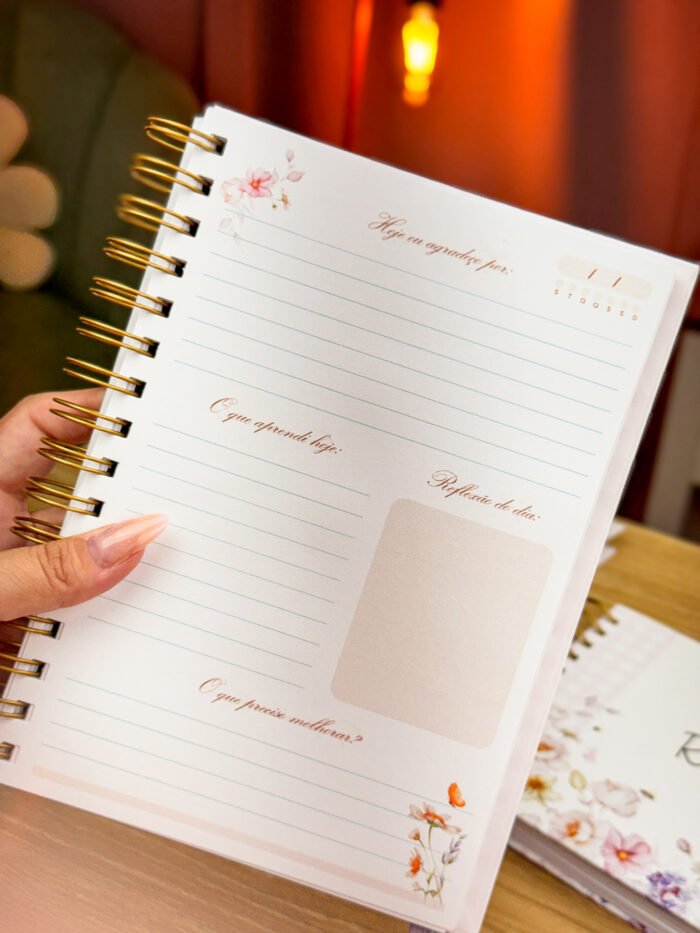 Hoje eu agradeço por:
/ /
S T Q Q S S D
O que aprendi hoje:
Reflexão do dia:
O que preciso melhorar?
R